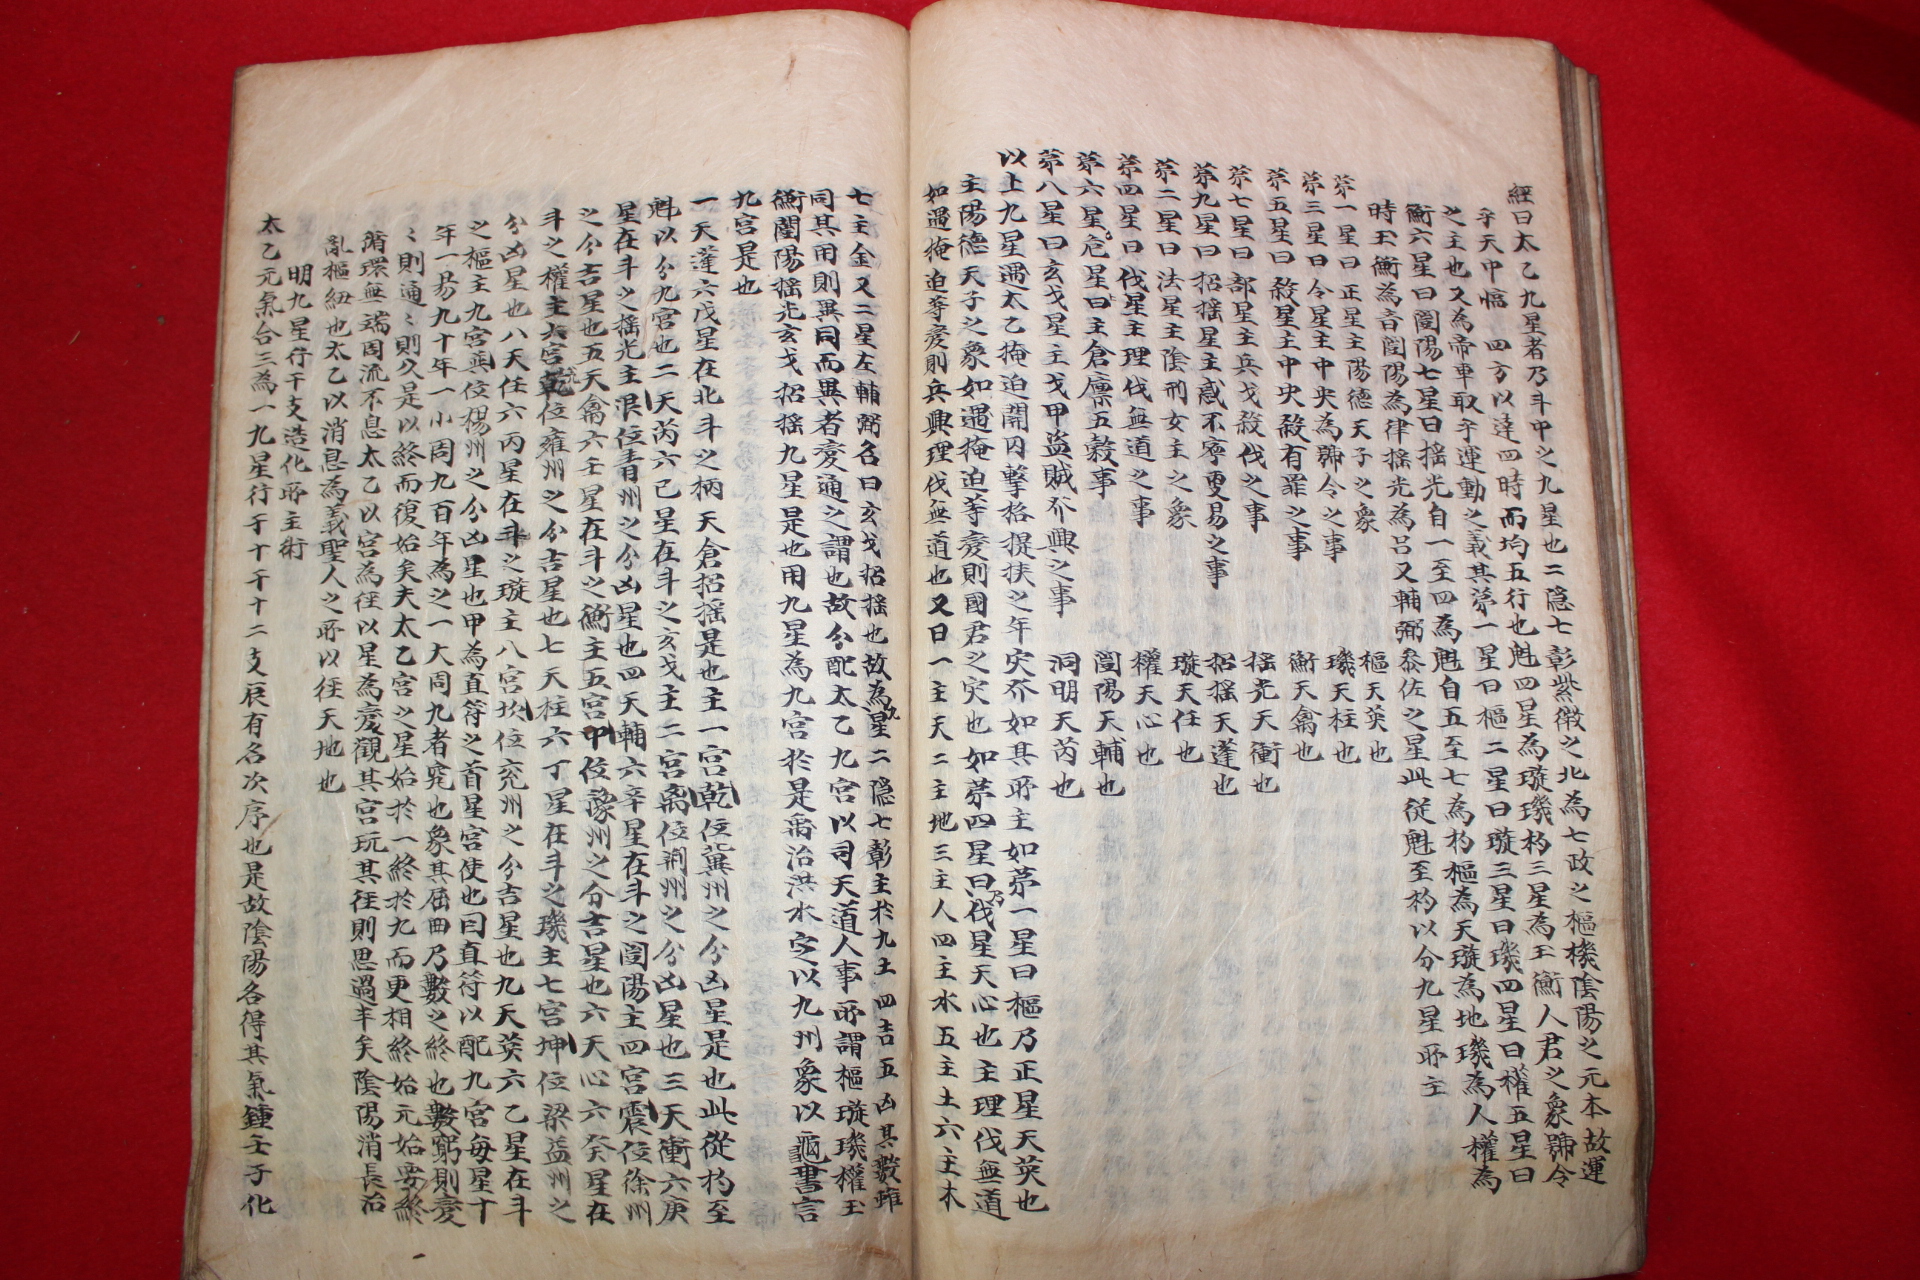 經曰太乙九星者乃斗中之九星也二隱七彰紫微之北為七政之樞機陰陽之元本故運
乎天中臨四方以達四時而均五行也魁四星為璇璣杓三星為玉衡人君之象號令
之主也又為帝車取乎運動之義其第一星曰樞二星曰璇三星曰璣四星曰權五星曰
衡六星曰闓陽七星曰揺光自一至四為魁自五至七為杓樞為天璇為地璣為人權為
時玉衡為音闓陽為律揺光為呂又輔弼叅佐之星此從魁至杓以分九星所主
第一星曰正星主陽德天子之象 樞天英也
第三星曰令星主中央為號令之事 璣天柱也
第五星曰殺星主中央殺有罪之事 衡天禽也
第七星曰部星主兵戈殺伐之事 揺光天衝也
第九星曰招揺星主惑不寧更易之事 招揺天蓬也
第二星曰法星主陰刑女主之象 璇天任也
第四星曰伐星主理伐無道之事 權天心也
第六星危星曰主倉廩五穀事 闓陽天輔也
第八星曰玄戈星主戈甲盜賊夰興之事 洞明天芮也
以上九星遇太乙掩迫開囚擊格提挾之年灾夰如其所主如第一星曰樞乃正星天英也
主陽德天子之象如遇掩迫等變則國君之灾也如第四星曰乃伐星天心也主理伐無道
如遇掩迫等變則兵興理伐無道也又曰一主天二主地三主人四主水五主土六主木
七主金又二星左輔弼名曰玄戈招揺也故為九星二隱七彰主於九土四吉五凶其數雖
同其用則異同而異者變通之謂也故分配太乙九宮以司天道人事所謂樞璇璣權玉
衡闓陽揺光玄戈招揺九星是也用九星為九宮於是禹治洪水定以九州象以龜書言
九宮是也
一天蓬六戊星在北斗之柄天倉招揺是也主一宮乾位冀州之分凶星是也此從杓至
魁以分九宮也二天芮六已星在斗之玄戈主二宮离位荊州之分凶星也三天衝六庚
星在斗之揺光主三艮位青州之分凶星也四天輔六辛星在斗之闓陽主四宮震位徐州
之分吉星也五天禽六壬星在斗之衡主五宮中位豫州之分吉星也六天心六癸星在
斗之權主六宮兌位雍州之分吉星也七天柱六丁星在斗之璣主七宮坤位梁益州之
分凶星也八天任六丙星在斗之璇主八宮坎位兗州之分吉星也九天英六乙星在斗
之樞主九宮巽位楊州之分凶星也甲為直符之首星宮使也曰直符以配九宮每星十
年一易九十年一小周九百年為之一大周九者究也象其屈曲乃數之終也數窮則變
〻則通〻則久是以終而復始矣夫太乙宮之星始於一終於九而更相終始元始要終
循環無端周流不息太乙以宮為徑以星為變觀其宮玩其徃則思過半矣陰陽消長治
亂樞紐也太乙以消息為義聖人之所以徑天地也
明九星行干支造化所主術
太乙元氣合三為一九星行于十干十二支辰有名次序也是故陰陽各得其氣鍾壬子化